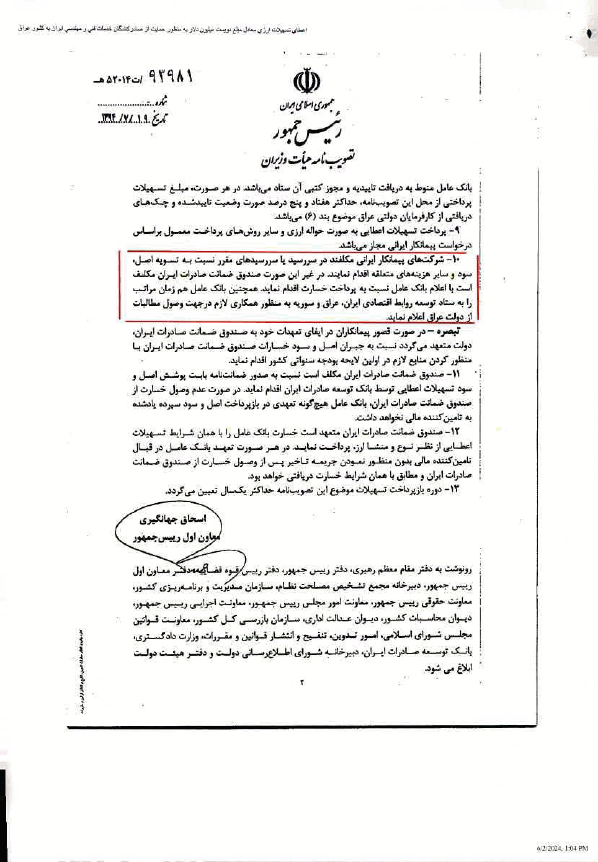 اعطای تسهیلات ارزی معادل مبلغ دویست میلیون دلار به منظور حمایت از صادرکنندگان خدمات فنی و مهندسی ایران به کشور عراق
۹۳۹۸۱/ت۵۲۰۱۴هـ
شماره
تاریخ ۱۳۹۴/۷/۱۹
جمهوری اسلامی ایران
رئیس جمهور
تصویب نامه هیأت وزیران
بانک عامل منوط به دریافت تاییدیه و مجوز کتبی آن ستاد می‌باشد. در هر صورت، مبلغ تسهیلات
پرداختی از محل این تصویب‌نامه، حداکثر هفتاد و پنج درصد صورت وضعیت تاییدشده و چک‌های
دریافتی از کارفرمایان دولتی عراق موضوع بند (۶) می‌باشد.
۹- پرداخت تسهیلات اعطایی به صورت حواله ارزی و سایر روش‌های پرداخت معمول براساس
درخواست پیمانکار ایرانی مجاز می‌باشد.
۱۰- شرکت‌های پیمانکار ایرانی مکلفند در سررسید یا سررسیدهای مقرر نسبت به تسویه اصل،
سود و سایر هزینه‌های متعلقه اقدام نمایند. در غیر این صورت صندوق ضمانت صادرات ایران مکلف
است با اعلام بانک عامل نسبت به پرداخت خسارت اقدام نماید. همچنین بانک عامل هم زمان مراتب
را به ستاد توسعه روابط اقتصادی ایران، عراق و سوریه به منظور همکاری لازم درجهت وصول مطالبات
از دولت عراق اعلام نماید.
تبصره – در صورت قصور پیمانکاران در ایفای تعهدات خود به صندوق ضمانت صادرات ایران،
دولت متعهد می‌گردد نسبت به جبران اصل و سود خسارات صندوق ضمانت صادرات ایران با
منظور کردن منابع لازم در اولین لایحه بودجه سنواتی کشور اقدام نماید.
۱۱- صندوق ضمانت صادرات ایران مکلف است نسبت به صدور ضمانت‌نامه بابت پوشش اصل و
سود تسهیلات اعطایی توسط بانک توسعه صادرات ایران اقدام نماید. در صورت عدم وصول خسارت از
صندوق ضمانت صادرات ایران، بانک عامل هیچ‌گونه تعهدی در بازپرداخت اصل و سود سپرده یادشده
به تامین‌کننده مالی نخواهد داشت.
۱۲- صندوق ضمانت صادرات ایران متعهد است خسارت بانک عامل را با همان شرایط تسهیلات
اعطایی از نظر نوع و منشا ارز، پرداخت نماید. در هر صورت تعهد بانک عامل در قبال
تامین‌کننده مالی بدون منظور نمودن جریمه تاخیر پس از وصول خسارت از صندوق ضمانت
صادرات ایران و مطابق با همان شرایط خسارت دریافتی خواهد بود.
۱۳- دوره بازپرداخت تسهیلات موضوع این تصویب‌نامه حداکثر یکسال تعیین می‌گردد.
اسحاق جهانگیری
معاون اول رییس‌جمهور
رونوشت به دفتر مقام معظم رهبری، دفتر رییس جمهور، دفتر رییس قوه قضاییه، دفتر معاون اول
رییس جمهور، دبیرخانه مجمع تشخیص مصلحت نظام، سازمان مدیریت و برنامه‌ریزی کشور،
معاونت حقوقی رییس جمهور، معاونت امور مجلس رییس جمهور، معاونت اجرایی رییس جمهور،
دیوان محاسبات کشور، دیوان عدالت اداری، سازمان بازرسی کل کشور، معاونت قوانین
مجلس شورای اسلامی، امور تدوین، تنقیح و انتشار قوانین و مقررات، وزارت دادگستری،
بانک توسعه صادرات ایران، دبیرخانه شورای اطلاع‌رسانی دولت و دفتر هیئت دولت
ابلاغ می شود.
۲
6/2/2024, 1:04 PM